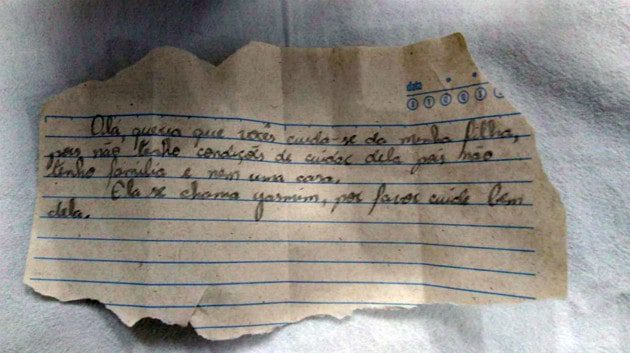 data
D S T Q Q S
Olá, queria que vocês cuida-se da minha filha,
pois não tenho condições de cuidar dela pois não
tenho família e nem uma casa.
Ela se chama yasmim, por favor cuide bem
dela.